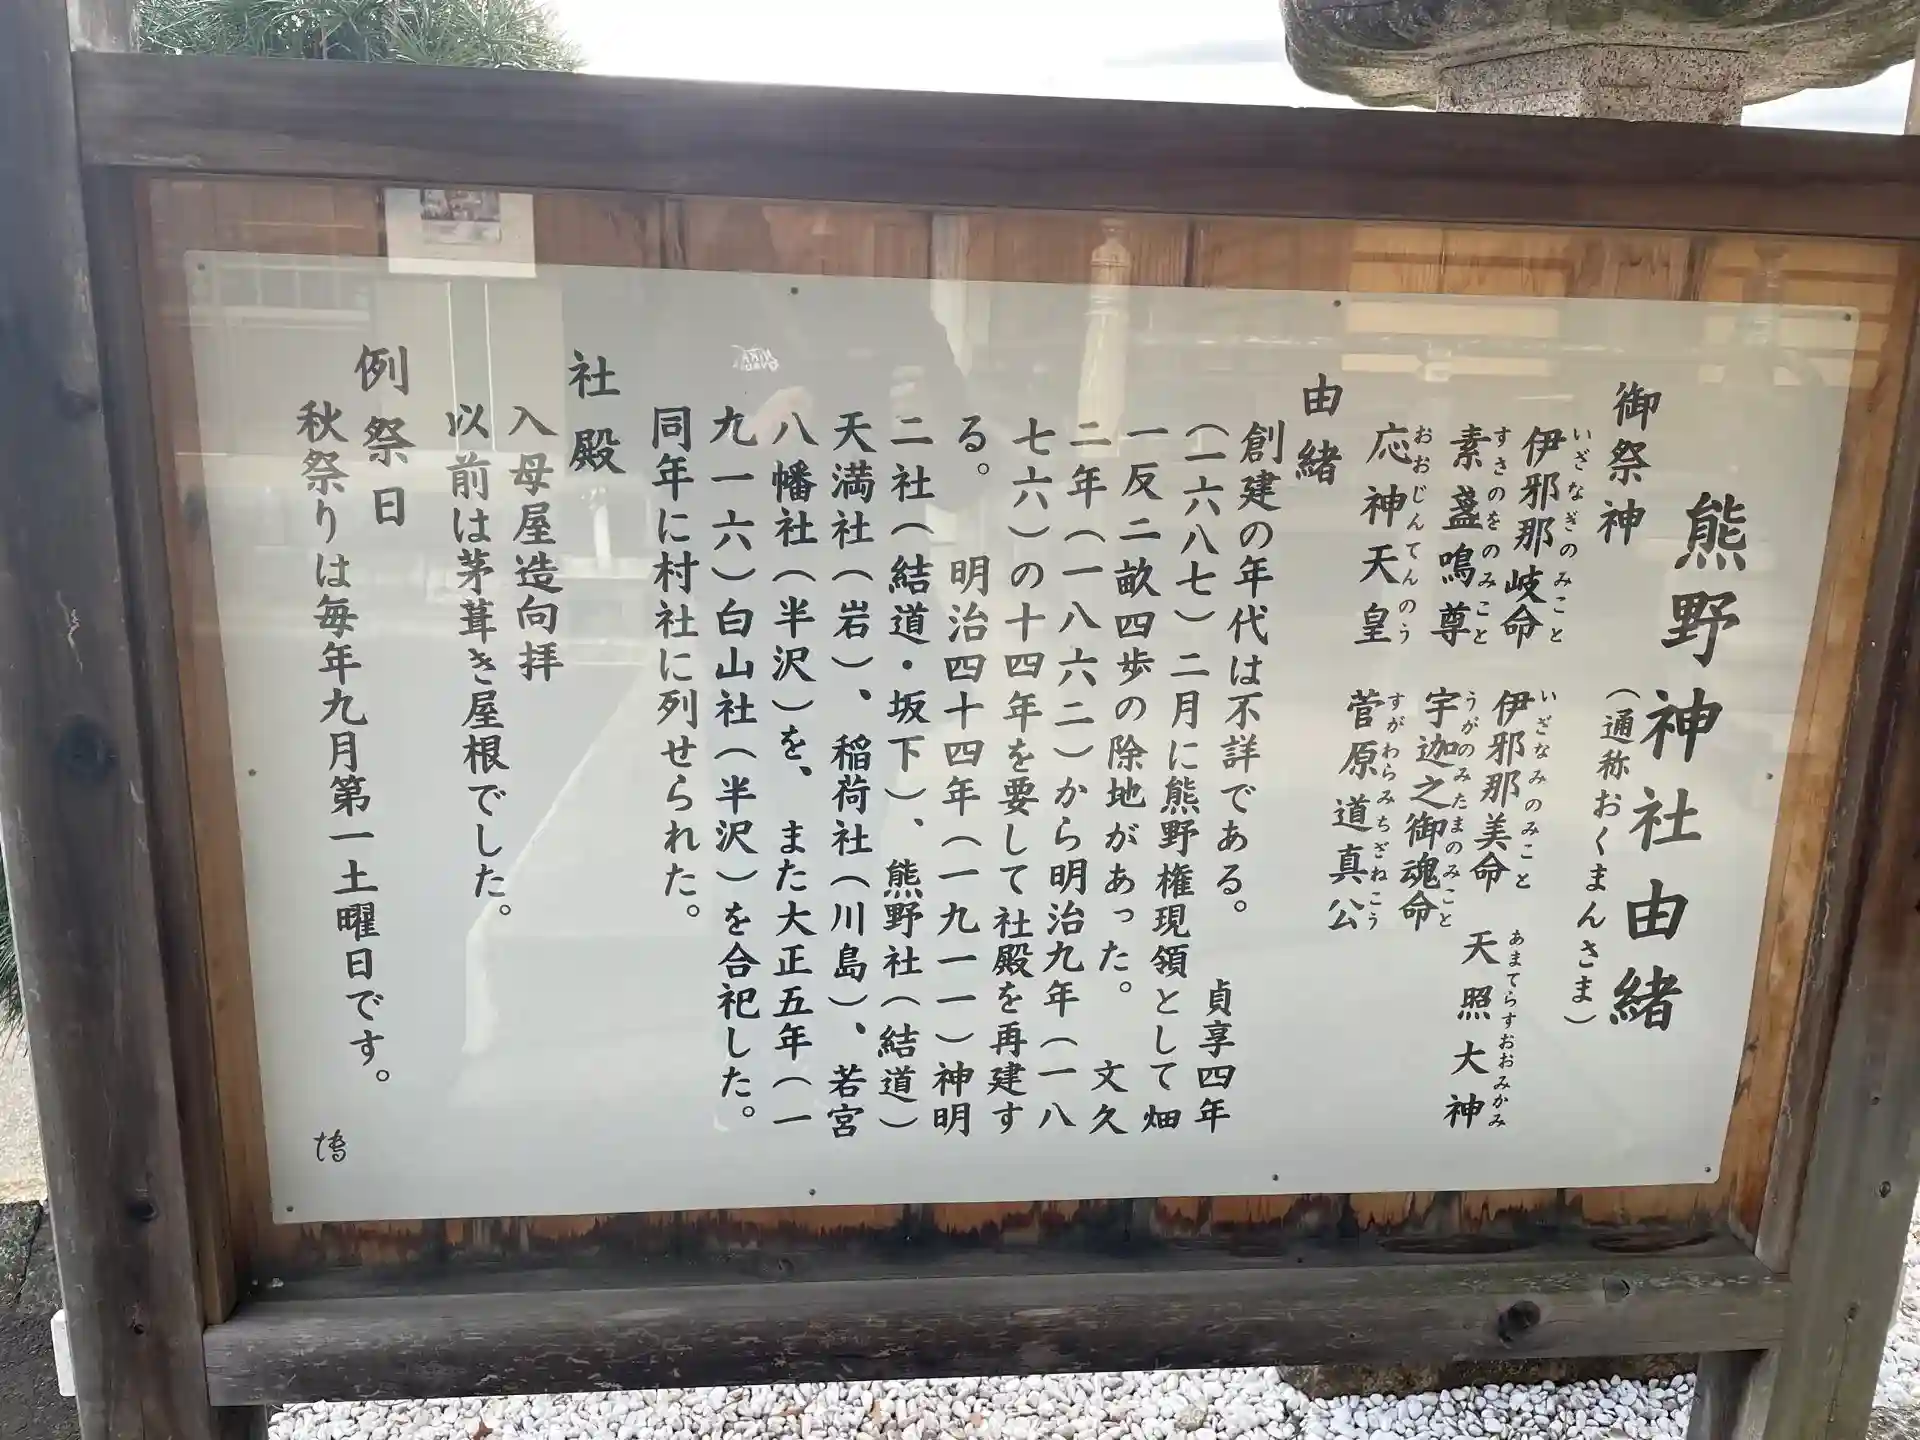 熊野神社由緒
（通称おくまんさま）
御祭神
伊邪那岐命 伊邪那美命 天照大神
いざなぎのみこと いざなみのみこと あまてらすおおみかみ
素盞鳴尊 宇迦之御魂命
すさのをのみこと うがのみたまのみこと
応神天皇 菅原道真公
おおじんてんのう すがわらみちざねこう
由緒
創建の年代は不詳である。 貞享四年
（一六八七）二月に熊野権現領として畑
一反二畝四歩の除地があった。 文久
二年（一八六二）から明治九年（一八
七六）の十四年を要して社殿を再建す
る。 明治四十四年（一九一一）神明
二社（結道・坂下）、熊野社（結道）
天満社（岩）、稲荷社（川島）、若宮
八幡社（半沢）を、また大正五年（一
九一六）白山社（半沢）を合祀した。
同年に村社に列せられた。
社殿
入母屋造向拝
以前は茅葺き屋根でした。
例祭日
秋祭りは毎年九月第一土曜日です。